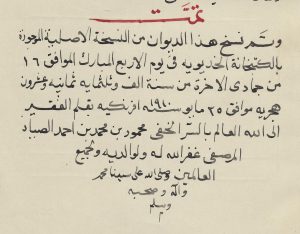 تمّت
وتم نسخ هذا الديوان من النسخة الاصلية الموجودة
بالكتبخانة الخديوية في يوم الاربع المبارك الموافق ١٦
من جمادى الآخرة من سنة الف وثلثمايه ثمانيه وعشرون
هجريه موافق ٢٥ مايو سنة ١٩١٠ افرنكيه بقلم الفقير
الى الله العالم بالسر الخفي محمود بن محمد بن احمد الصياد
المرصفي غفر الله له ولوالديه ولجميع
العالمين وصلى الله على سيدنا محمد
وآله وصحبه
وسلم
م